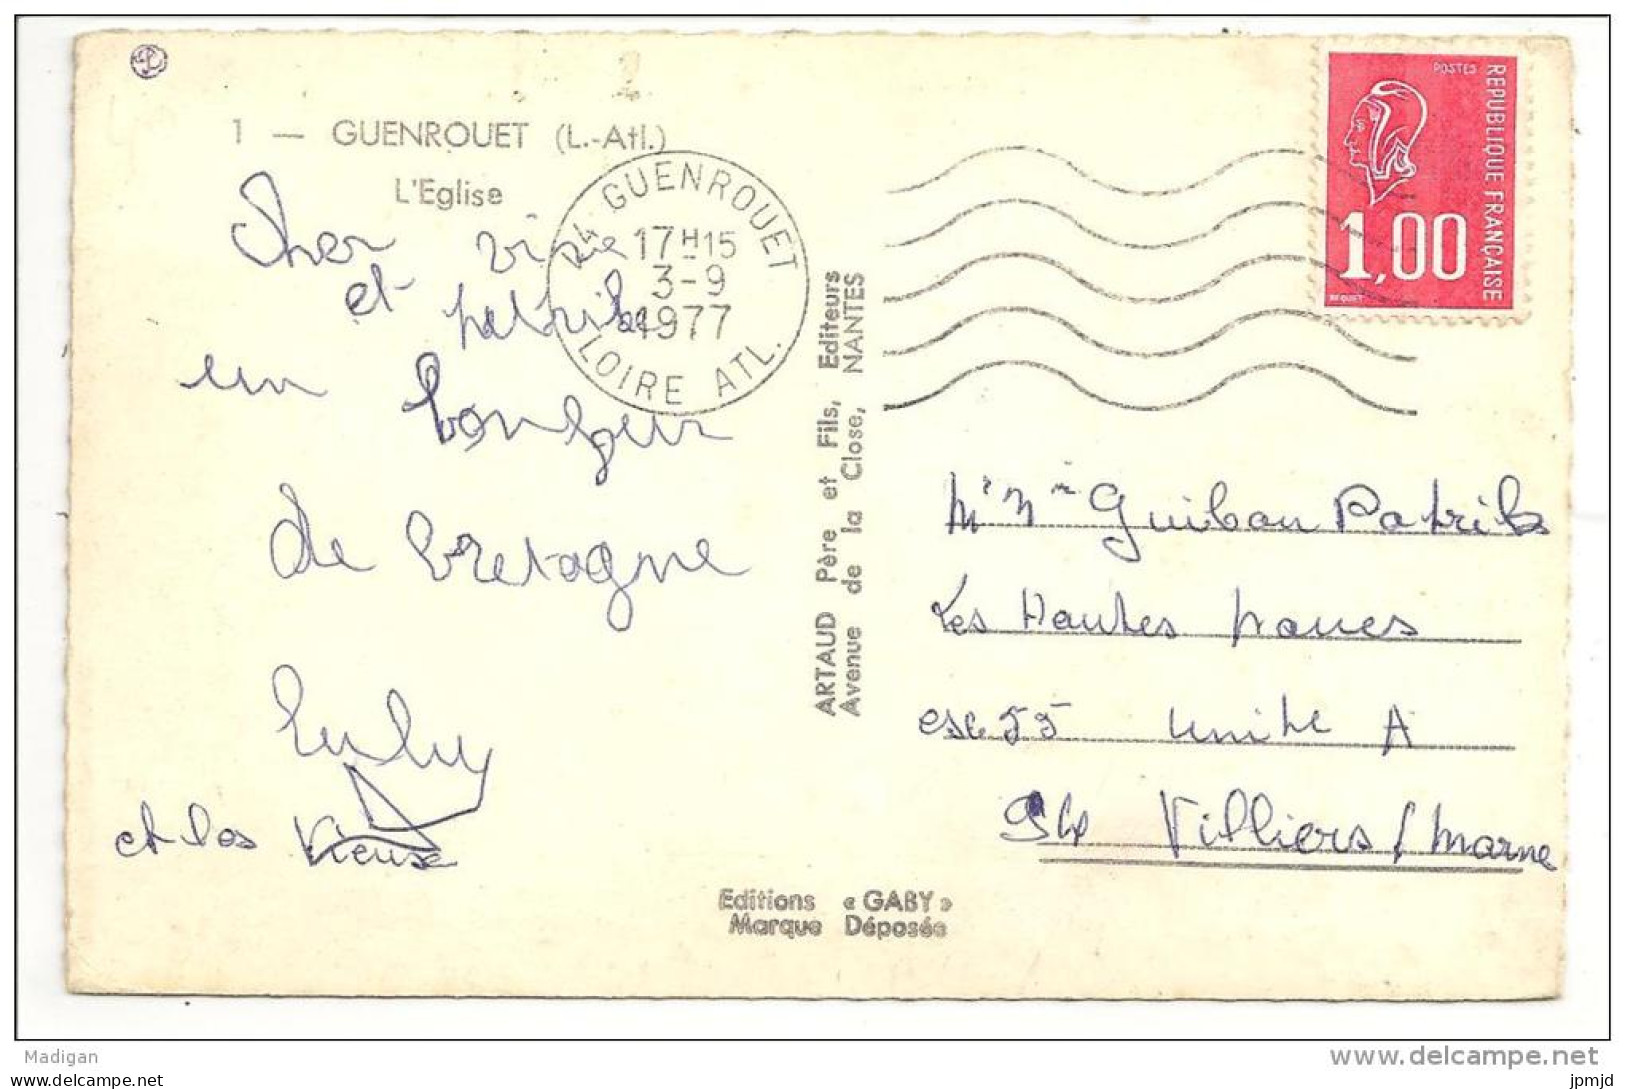 1 — GUENROUET (L.-Atl.)
L'Eglise
44 GUENROUET
17H15
3-9
1977
LOIRE ATL.
POSTES
REPUBLIQUE FRANÇAISE
1,00
BEQUET
et patrik
un bonjour
de bretagne
et les Vieuse
ARTAUD Père et Fils, Editeurs
Avenue de la Close, NANTES
Editions « GABY »
Marque Déposée
Mr Mme Guibou Patrik
Les Hautes noues
esc 55 unite A
Villiers / marne
Madigan
www.delcampe.net
jpmjd